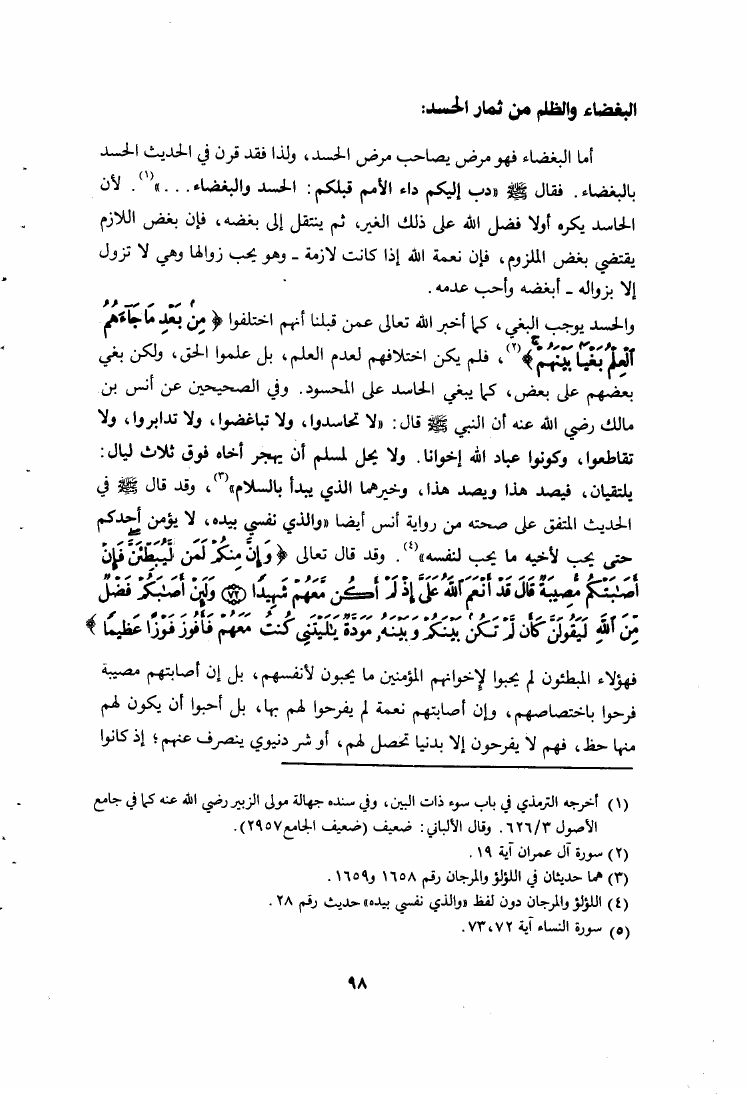 البغضاء والظلم من ثمار الحسد:
أما البغضاء فهو مرض يصاحب مرض الحسد، ولذا فقد قرن في الحديث الحسد
بالبغضاء. فقال ﷺ «دب إليكم داء الأمم قبلكم: الحسد والبغضاء...»(١). لأن
الحاسد يكره أولا فضل الله على ذلك الغير، ثم ينتقل إلى بغضه، فإن بغض اللازم
يقتضي بغض الملزوم، فإن نعمة الله إذا كانت لازمة ـ وهو يحب زوالها وهي لا تزول
إلا بزواله ـ أبغضه وأحب عدمه.
والحسد يوجب البغي، كما أخبر الله تعالى عمن قبلنا أنهم اختلفوا ﴿مِنۢ بَعْدِ مَا جَآءَهُمُ
ٱلْعِلْمُ بَغْيًۢا بَيْنَهُمْ﴾(٢)، فلم يكن اختلافهم لعدم العلم، بل علموا الحق، ولكن بغي
بعضهم على بعض، كما يبغي الحاسد على المحسود. وفي الصحيحين عن أنس بن
مالك رضي الله عنه أن النبي ﷺ قال: «لا تحاسدوا، ولا تباغضوا، ولا تدابروا، ولا
تقاطعوا، وكونوا عباد الله إخوانا. ولا يحل لمسلم أن يهجر أخاه فوق ثلاث ليال:
يلتقيان، فيصد هذا ويصد هذا، وخيرهما الذي يبدأ بالسلام»(٣)، وقد قال ﷺ في
الحديث المتفق على صحته من رواية أنس أيضا «والذي نفسي بيده، لا يؤمن أحدكم
حتى يحب لأخيه ما يحب لنفسه»(٤). وقد قال تعالى ﴿وَإِنَّ مِنكُمْ لَمَن لَّيُبَطِّئَنَّ فَإِنْ
أَصَٰبَتْكُم مُّصِيبَةٌ قَالَ قَدْ أَنْعَمَ ٱللَّهُ عَلَىَّ إِذْ لَمْ أَكُن مَّعَهُمْ شَهِيدًا (٧٢) وَلَئِنْ أَصَٰبَكُمْ فَضْلٌ
مِّنَ ٱللَّهِ لَيَقُولَنَّ كَأَن لَّمْ تَكُنۢ بَيْنَكُمْ وَبَيْنَهُۥ مَوَدَّةٌ يَٰلَيْتَنِى كُنتُ مَعَهُمْ فَأَفُوزَ فَوْزًا عَظِيمًا﴾
فهؤلاء المبطئون لم يحبوا لإخوانهم المؤمنين ما يحبون لأنفسهم، بل إن أصابتهم مصيبة
فرحوا باختصاصهم، وإن أصابتهم نعمة لم يفرحوا لهم بها، بل أحبوا أن يكون لهم
منها حظ، فهم لا يفرحون إلا بدنيا تحصل لهم، أو شر دنيوي ينصرف عنهم؛ إذ كانوا
(١) أخرجه الترمذي في باب سوء ذات البين، وفي سنده جهالة مولى الزبير رضي الله عنه كما في جامع
الأصول ٦٢٦/٣. وقال الألباني: ضعيف (ضعيف الجامع٢٩٥٧).
(٢) سورة آل عمران آية ١٩.
(٣) هما حديثان في اللؤلؤ والمرجان رقم ١٦٥٨ و١٦٥٩.
(٤) اللؤلؤ والمرجان دون لفظ «والذي نفسي بيده» حديث رقم ٢٨.
(٥) سورة النساء آية ٧٢،٧٣.
٩٨